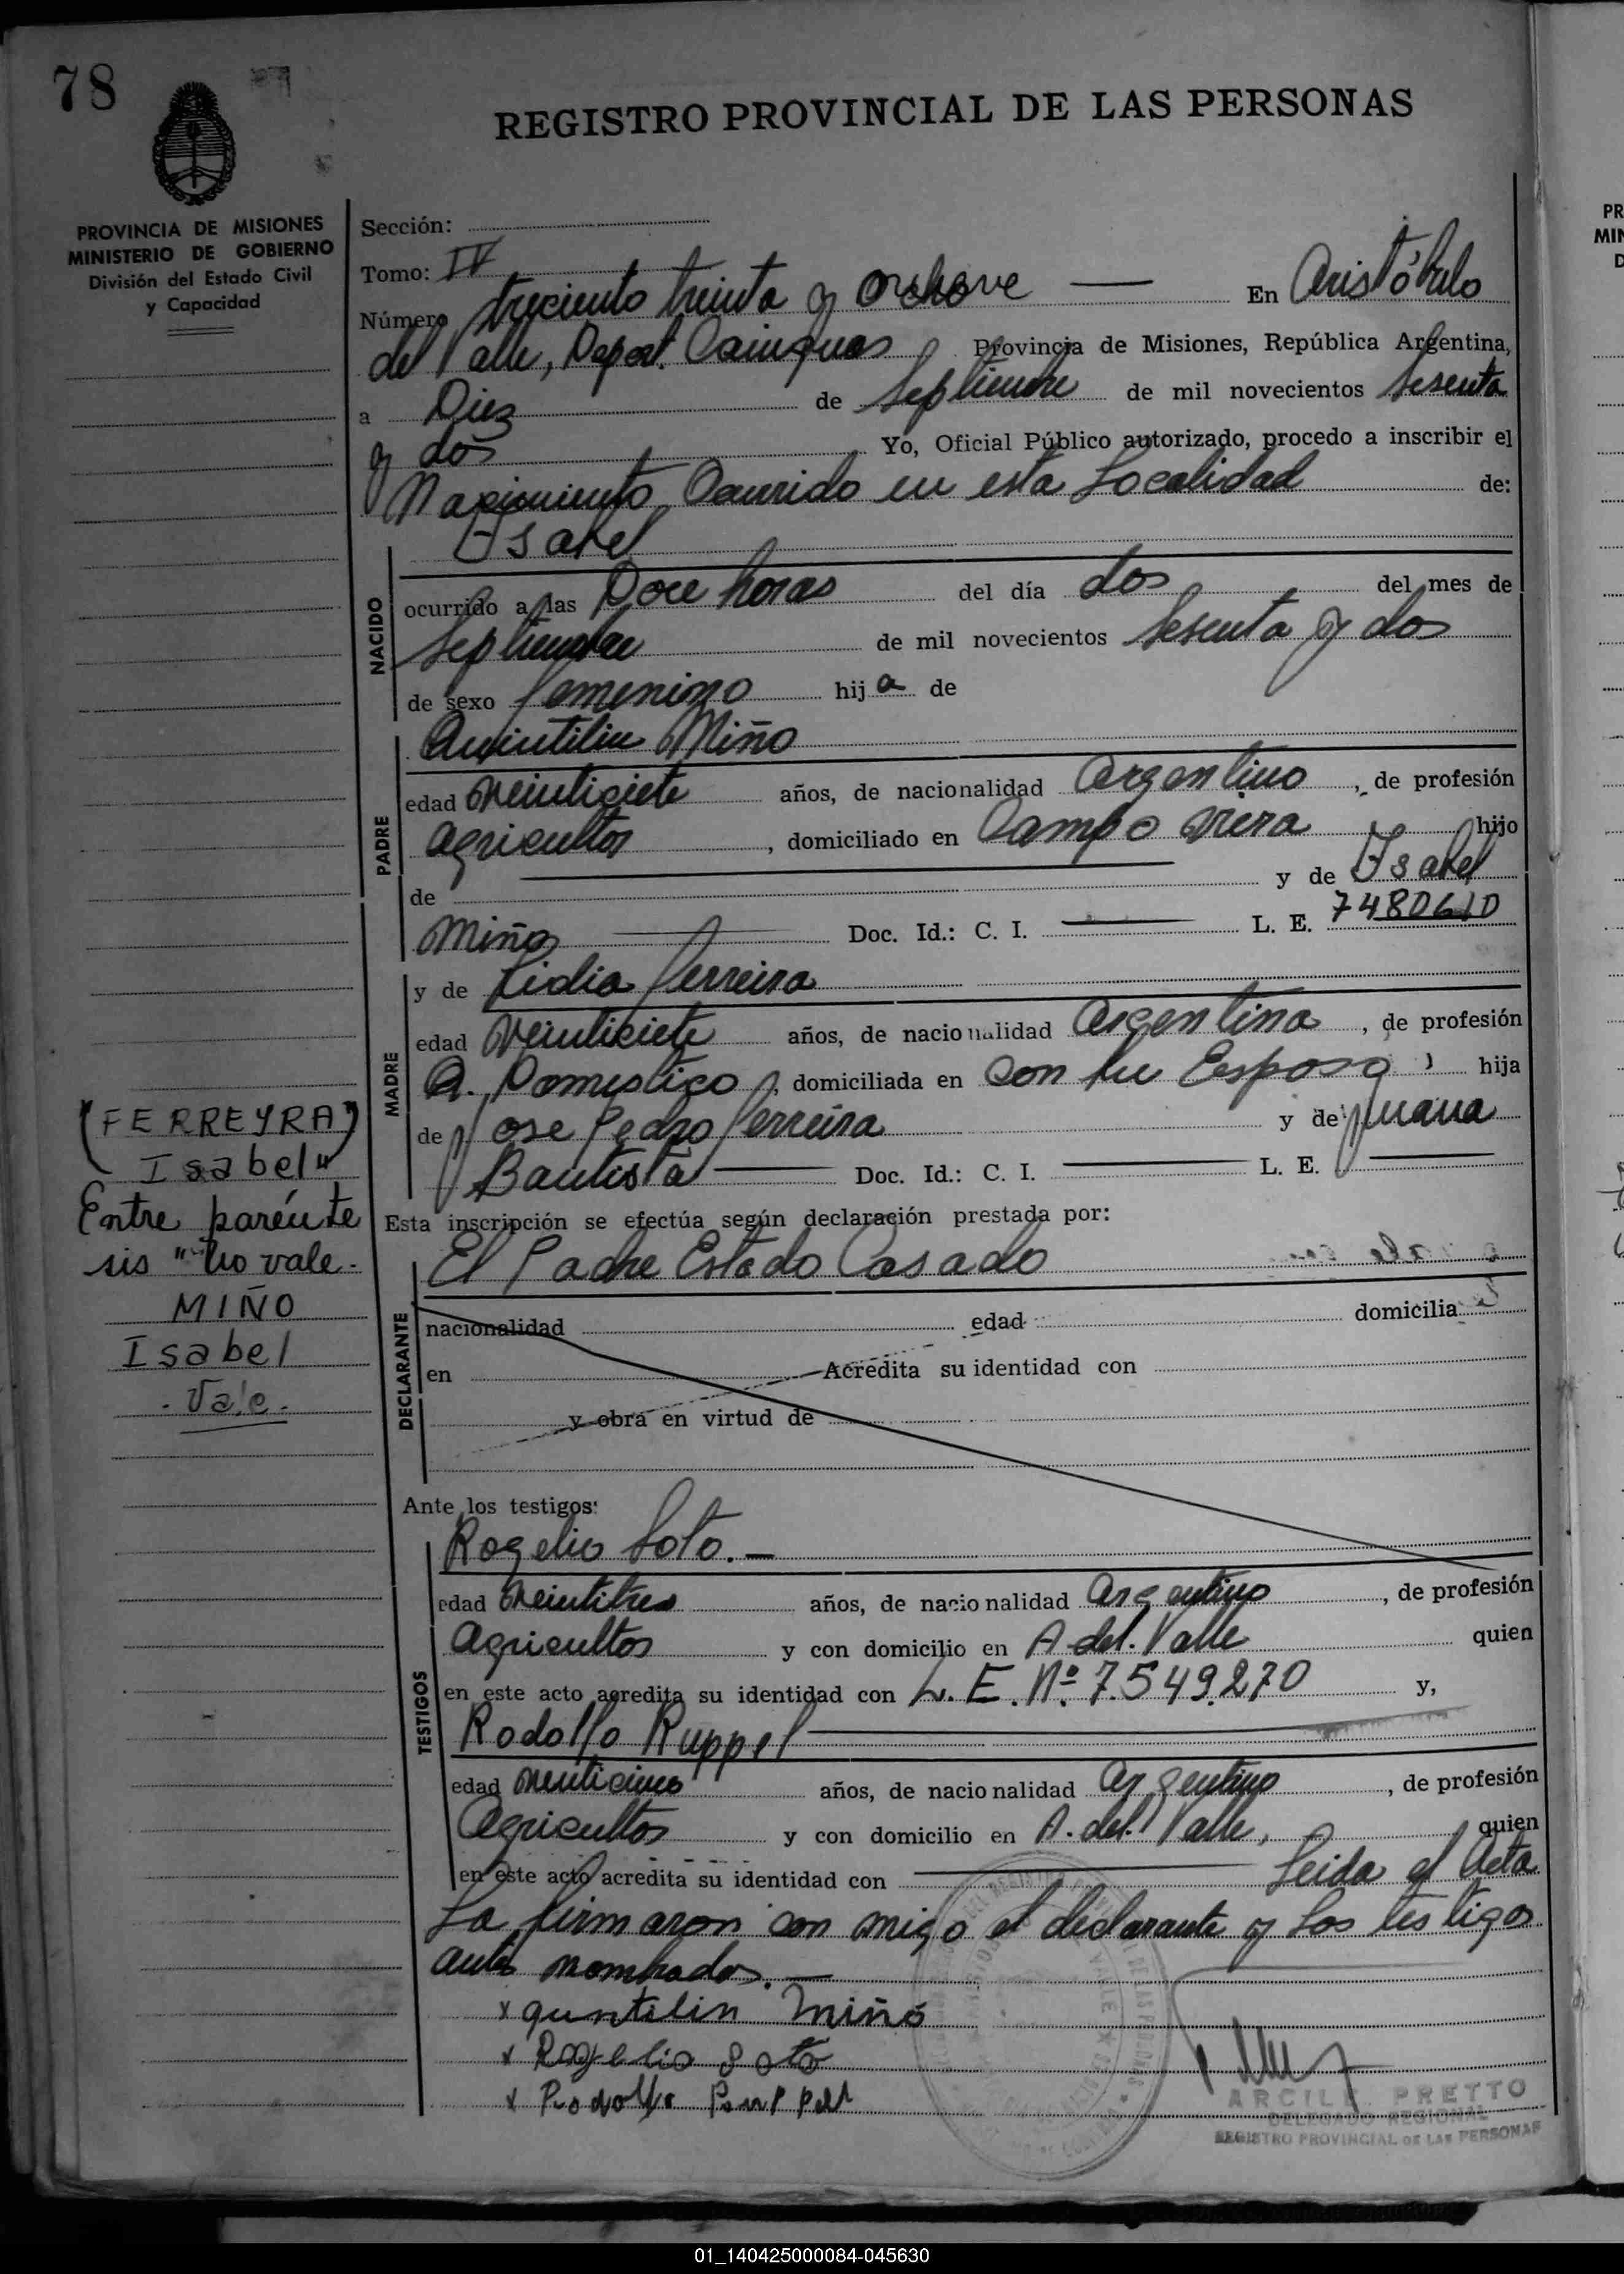 78
REGISTRO PROVINCIAL DE LAS PERSONAS
PROVINCIA DE MISIONES
MINISTERIO DE GOBIERNO
División del Estado Civil
y Capacidad
Sección:
Tomo: IV
Número treciento treinta y — En Aristóbulo
del Valle, Depart. Cainguas Provincia de Misiones, República Argentina,
a Diez de Septiembre de mil novecientos Sesenta
y dos Yo, Oficial Público autorizado, procedo a inscribir el
Nacimiento Ocurrido en esta Localidad de:
Isabel
NACIDO
ocurrido a las Doce horas del día dos del mes de
Septiembre de mil novecientos Sesenta y dos
de sexo femenino hija de
Quintilin Miño
PADRE
edad Veinticiete años, de nacionalidad Argentino, de profesión
Agricultor, domiciliado en Campo Viera hijo
de — y de Isabel
Miño — Doc. Id.: C. I. — L. E. 7480610
MADRE
y de Lidia Ferreira
edad Veinticiete años, de nacionalidad Argentina, de profesión
Q. Domestico, domiciliada en Con su Esposo, hija
de Jose Pedro Ferreira y de Juana
Bautista — Doc. Id.: C. I. — L. E. —
(FERREYRA)
Isabel"
Entre parénte
sis "no vale.
MIÑO
Isabel
. Vale.
Esta inscripción se efectúa según declaración prestada por:
El Padre Estado Casado
DECLARANTE
nacionalidad edad domicilia
en Acredita su identidad con
y obra en virtud de
Ante los testigos:
Rogelio Soto. —
TESTIGOS
edad Veintitres años, de nacionalidad Argentino, de profesión
Agricultor y con domicilio en A. del. Valle quien
en este acto acredita su identidad con L. E. Nº 7.549.270 y,
Rodolfo Ruppel —
edad Veinticinco años, de nacionalidad Argentino, de profesión
Agricultor y con domicilio en A. del. Valle, quien
en este acto acredita su identidad con — Leida el Acta
La firmaron con migo el declarante y Los testigos
antes nombrados. —
x quntilin Miño
x Rogelio Soto
x Rodolfo
ARCILE PRETTO
DELEGADO REGIONAL
REGISTRO PROVINCIAL DE LAS PERSONAS
PR
MIN
D
01_140425000084-045630